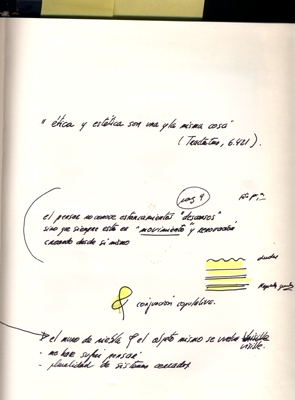 " ética y estética son una y la misma cosa"
( Tractatus, 6.421).
pag 9
el pensar no conoce estancamientos "descansos"
sino que siempre está en "movimiento" y renovación
creando desde si mismo
dudas
& conjunción copulativa.
el muro de niebla & el objeto mismo se vuelve visible.
- no hace sufrir pensar
- pluralidad de sistemas cerrados